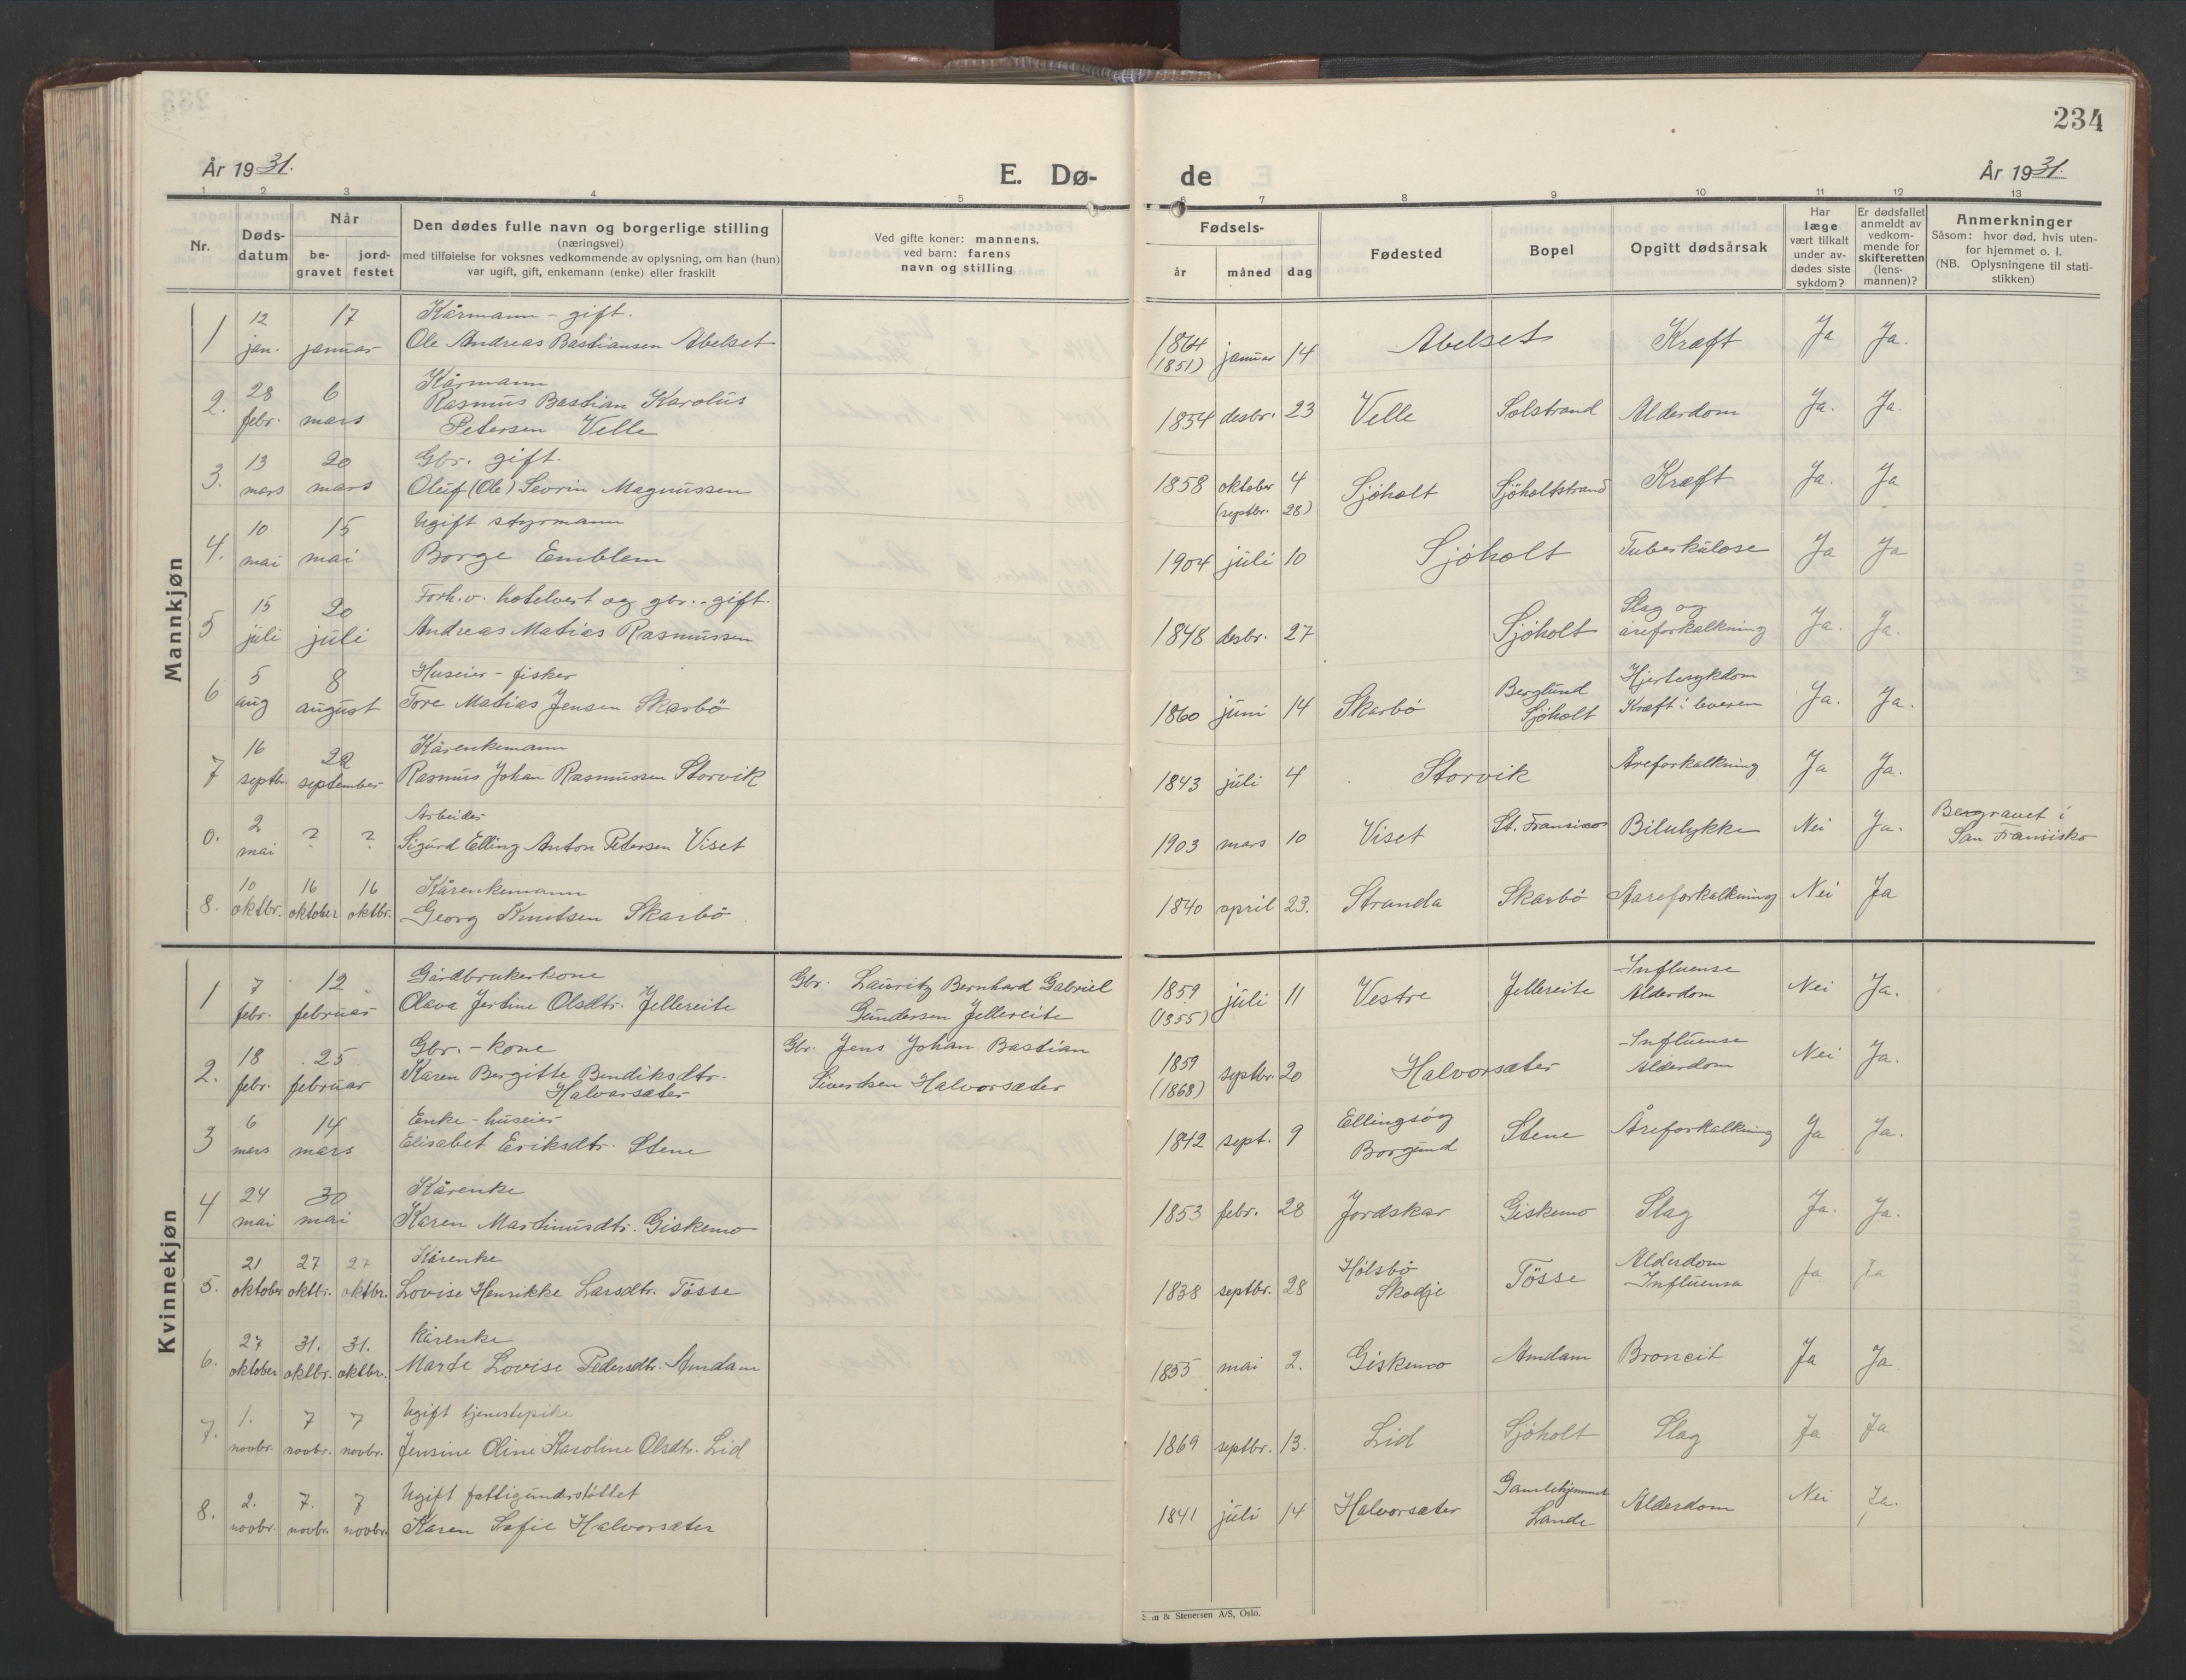 234
År 1931.
E. Dø-
de
År 1931.
1 2 3 4 5 6 7 8 9 10 11 12 13
Nr.
Døds-
datum
Når
be-
gravet
jord-
festet
Den dødes fulle navn og borgerlige stilling
(næringsvei)
med tilføielse for voksnes vedkommende av oplysning, om han (hun)
var ugift, gift, enkemann (enke) eller fraskilt
Ved gifte koner: mannens,
ved barn: farens
navn og stilling
Fødsels-
år måned dag
Fødested
Bopel
Opgitt dødsårsak
Har
læge
vært tilkalt
under av-
dødes siste
sykdom?
Er dødsfallet
anmeldt av
vedkom-
mende for
skifteretten
(lens-
mannen)?
Anmerkninger
Såsom: hvor død, hvis uten-
for hjemmet o. l.
(NB. Oplysningene til stati-
stikken)
Mannkjøn
1 12 jan. 17 januar
Kårmann - gift.
Ole Andreas Bastiansen Abelset
1864 (1851) januar 14 Abelset Kræft Ja Ja.
2. 28 febr. 6 mars
Kårmann
Rasmus Bastian Karolus
Petersen Velle
1854 desbr. 23 Velle Solstrand Alderdom Ja. Ja.
3. 13 mars 20 mars
Gbr. gift.
Oluf (Ole) Sevrin Magnussen
1858 oktober 4 (septbr. 28) Sjøholt Sjøholtstrand Kræft Ja. Ja
4. 10 mai 15 mai
Ugift styrmann
Borge Emblem
1904 juli 10 Sjøholt Tuberkulose Ja Ja
5 15 juli 20 juli
Forh.v. hotelvert og gbr. - gift.
Andreas Matias Rasmussen
1848 desbr. 27 Sjøholt Slag og åreforkalkning Ja. Ja.
6 5 aug 8 august
Huseier - fisker
Tore Matias Jensen Skarbö
1860 juni 14 Skarbö Berglund Sjøholt Hjertesykdom Kræft i leveren Ja. Ja.
7 16 septbr. 22 september
Kårenkemann
Rasmus Johan Rasmussen Storvik
1843 juli 4 Storvik Åreforkalkning Ja Ja.
0. 2 mai ? ?
Arbeider
Sigurd Elling Anton Petersen Viset
1903 mars 10 Viset St. Fransisco Bilulykke Nei Ja. Begravet i San Fransisko
8. 10 oktbr. 16 oktober 16 oktbr.
Kårenkemann
Georg Knutsen Skarbö
1840 april 23. Stranda Skarbö Aareforkalkning Nei Ja
Kvinnekjøn
1 7 febr. 12 februar
Gårdbrukerkone
Olava Jertine Olsdtr. Jellereite
Gbr. Lauritz Bernhard Gabriel
Gundersen Jellereite
1859 (1855) juli 11 Vestre Jellereite Influense Alderdom Nei Ja.
2. 18 febr. 25 februar
Gbr. - kone
Karen Bergitte Bendiksdtr.
Halvorsæter
Gbr. Jens Johan Bastian
Sivertsen Halvorsæter
1859 (1868) septbr. 20 Halvorsæter Influense Alderdom Nei Ja.
3 6 mars 14 mars
Enke - huseier
Elisabet Eriksdtr. Stene
1842 sept. 9 Ellingsöy Borgund Stene Åreforkalkning Ja Ja.
4 24 mai 30 mai
Kårenke
Karen Martinusdtr. Giskemo
1853 febr. 28 Jordskar Giskemo Slag Ja. Ja.
5. 21 oktober 27 oktbr. 27 oktbr.
Kårenke
Lovise Henrikke Larsdtr. Tösse
1838 septbr. 28 Hølsbö Skodje Tösse Alderdom Influensa Ja Ja
6. 27 oktober 31. oktbr. 31. oktbr.
Kårenke
Marte Lovise Pedersdtr. Amdam
1855 mai 2. Giskemo Amdam Broncit Ja Ja
7. 1. novbr. 7 novbr. 7 novbr.
Ugift tjenestepike
Jensine Oline Karoline Olsdtr. Lid
1869 septbr. 13. Lid Sjøholt Slag Ja Ja
8. 2. novbr. 7. novbr. 7 novbr.
Ugift fattigunderstöttet
Karen Sofie Halvorsæter
1841 juli 14 Halvorsæter Gamlehjemmet Lande Alderdom Nei Ja.
& Stenersen A/S, Oslo.